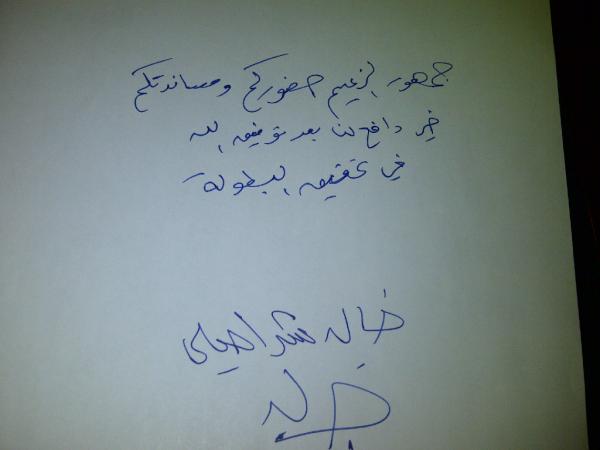 جمهور الزعيم حضوركم ومساندتكم
خير دافع لنا بعد توفيق الله
في تحقيق البطولة
خالد شراحيلي
خالد